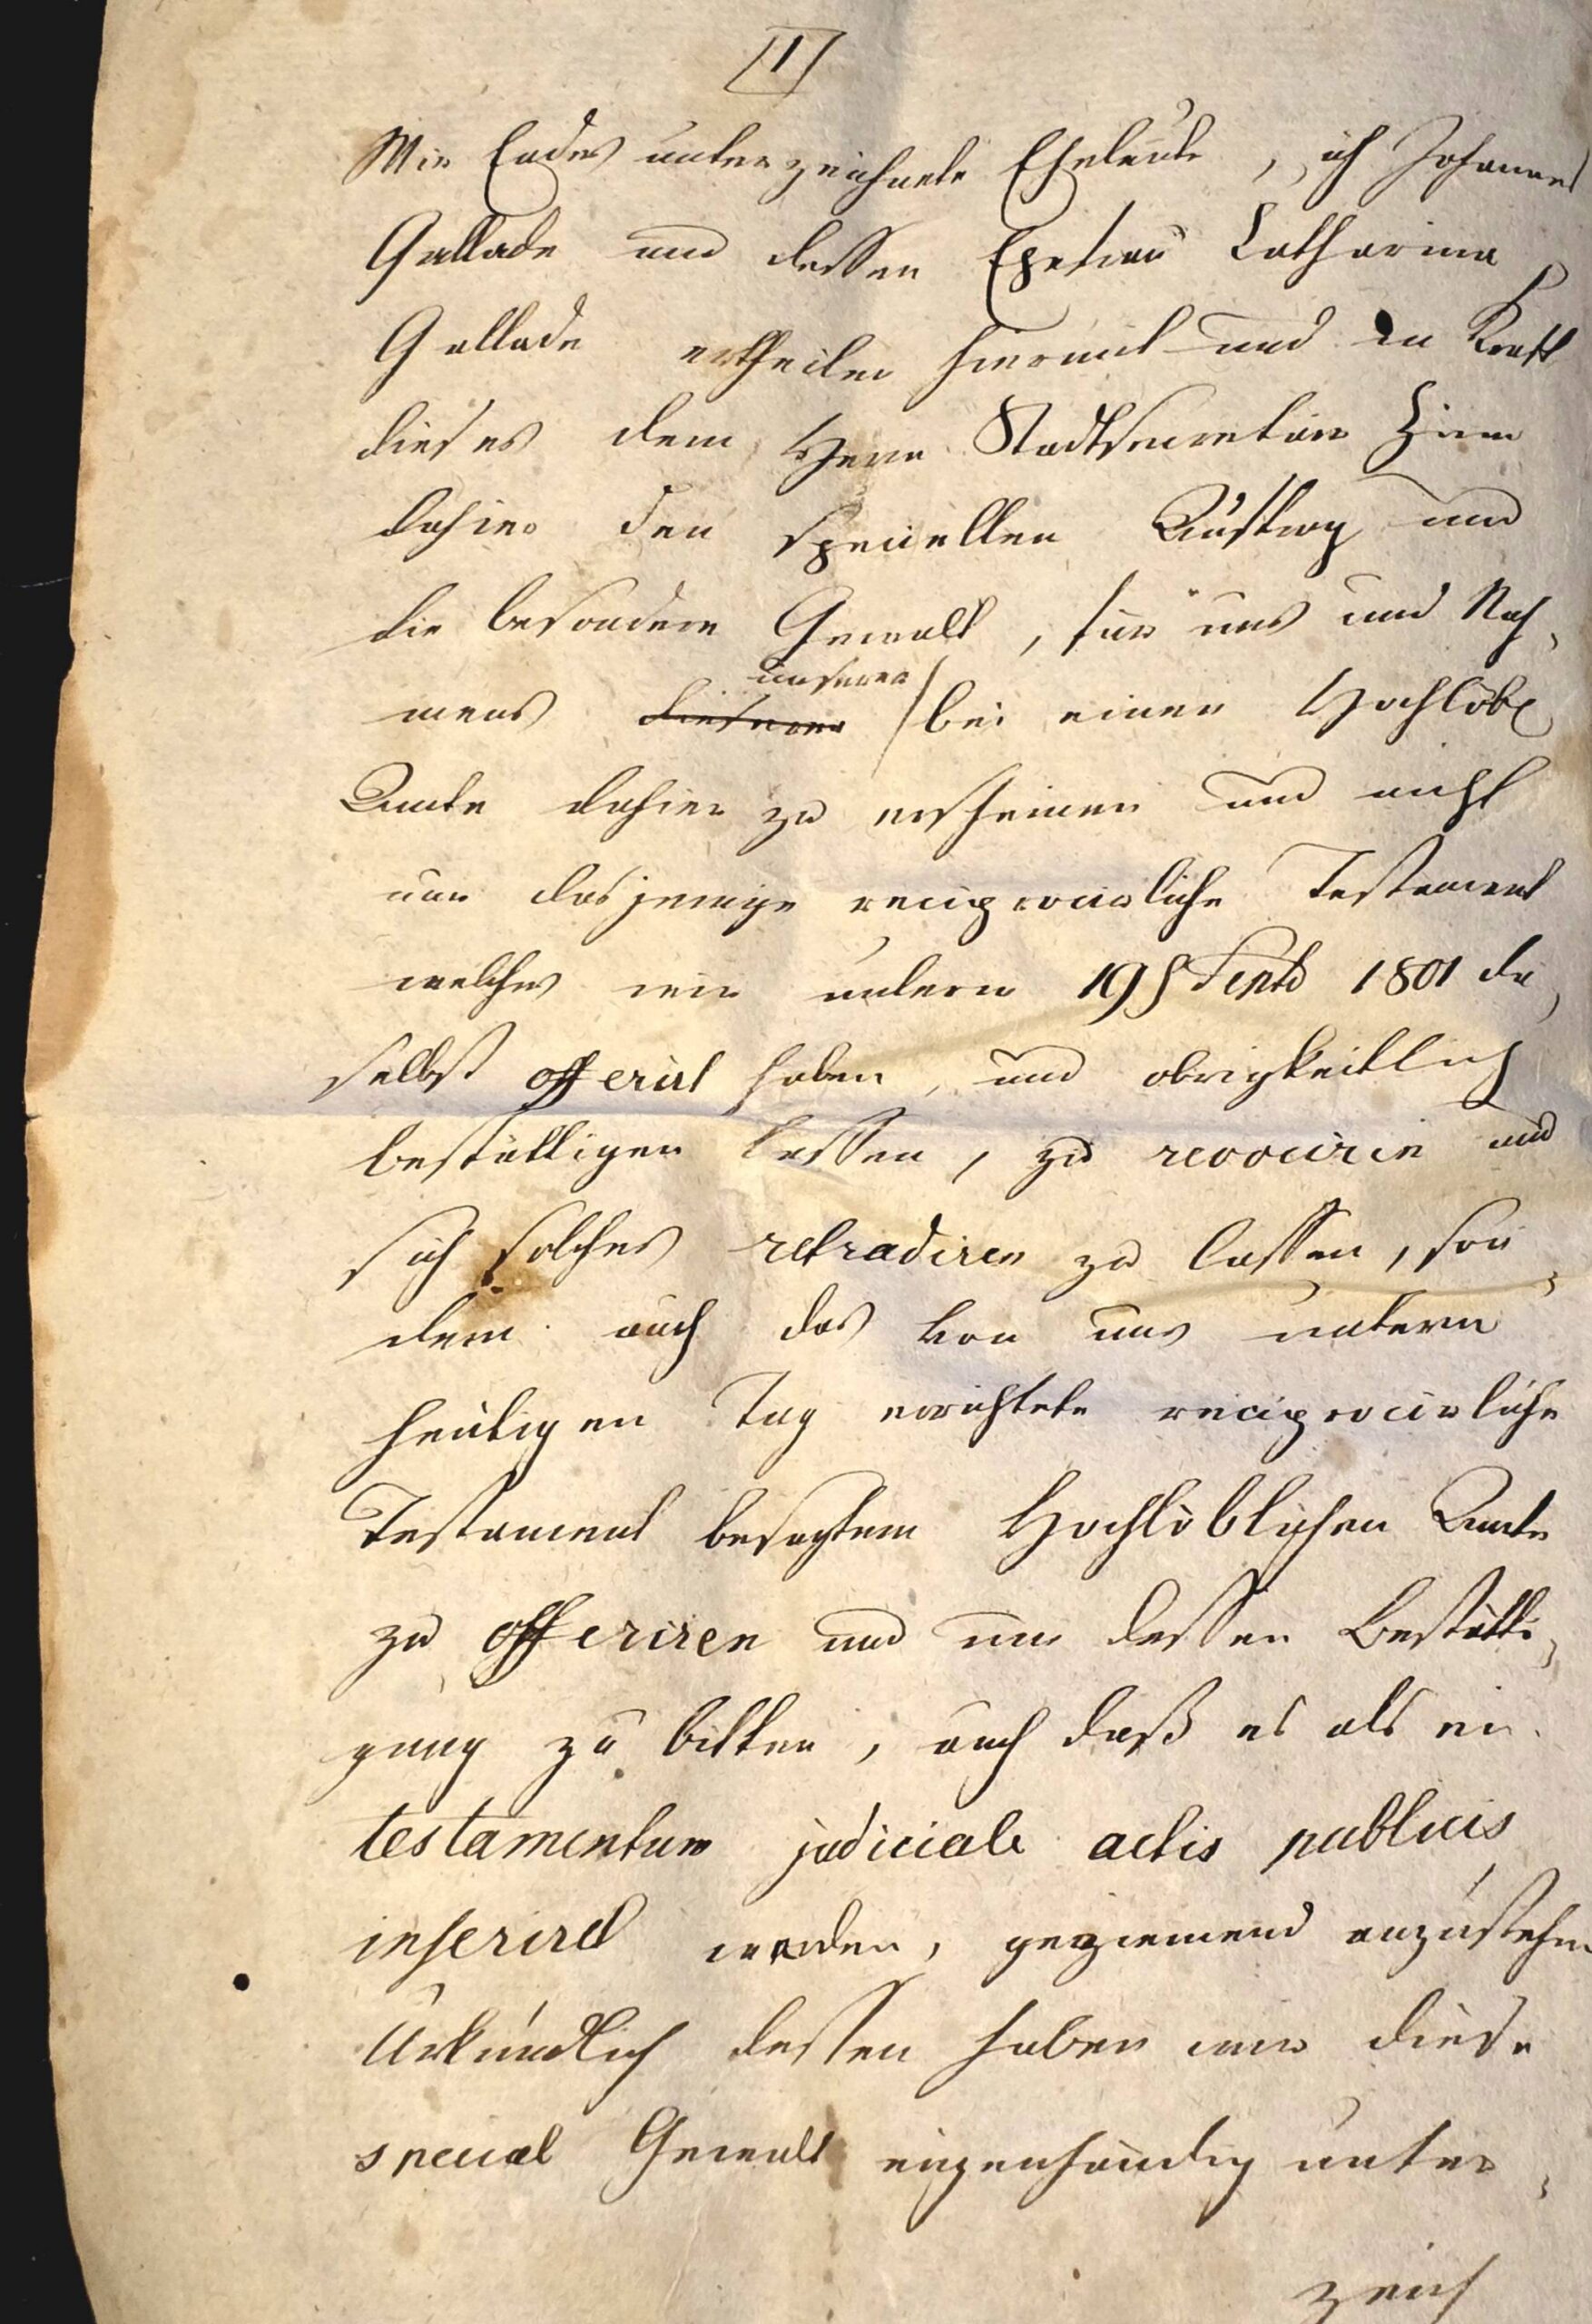 [1]
Wir Endes unterzeichnete Eheleute, ich Johannes
Gallade und dessen Ehefrau Catharina
Gallade ertheilen hiermit und in Kraft
dieses dem Herrn Stadtsecretair
dahier den speciellen Auftrag und
die besondere Gewalt, für uns und Nah,
mens dieserer unserer bei einem Hochlöbl
Amte dahier zu erscheinen und nicht
nur dasjenige reciprocirliche Testament
welches wir unterm 19 Septb 1801 da,
selbst offerirt haben, und obrigkeitlich
bestättigen lassen, zu revociren und
sich solches retradiren zu lassen, son,
dern auch das von uns unterm
heutigen Tag errichtete reciprocirliche
Testament besagtem Hochlöblichen Amte
zu offeriren und um dessen Bestätti,
gung zu bitten, auch daß es als ein
testamentum judiciale actis publicis
inserirt werden, geziemend anzustehen
Urkundlich dessen haben wir diese
special Gewalt eigenhändig unter,
zeich